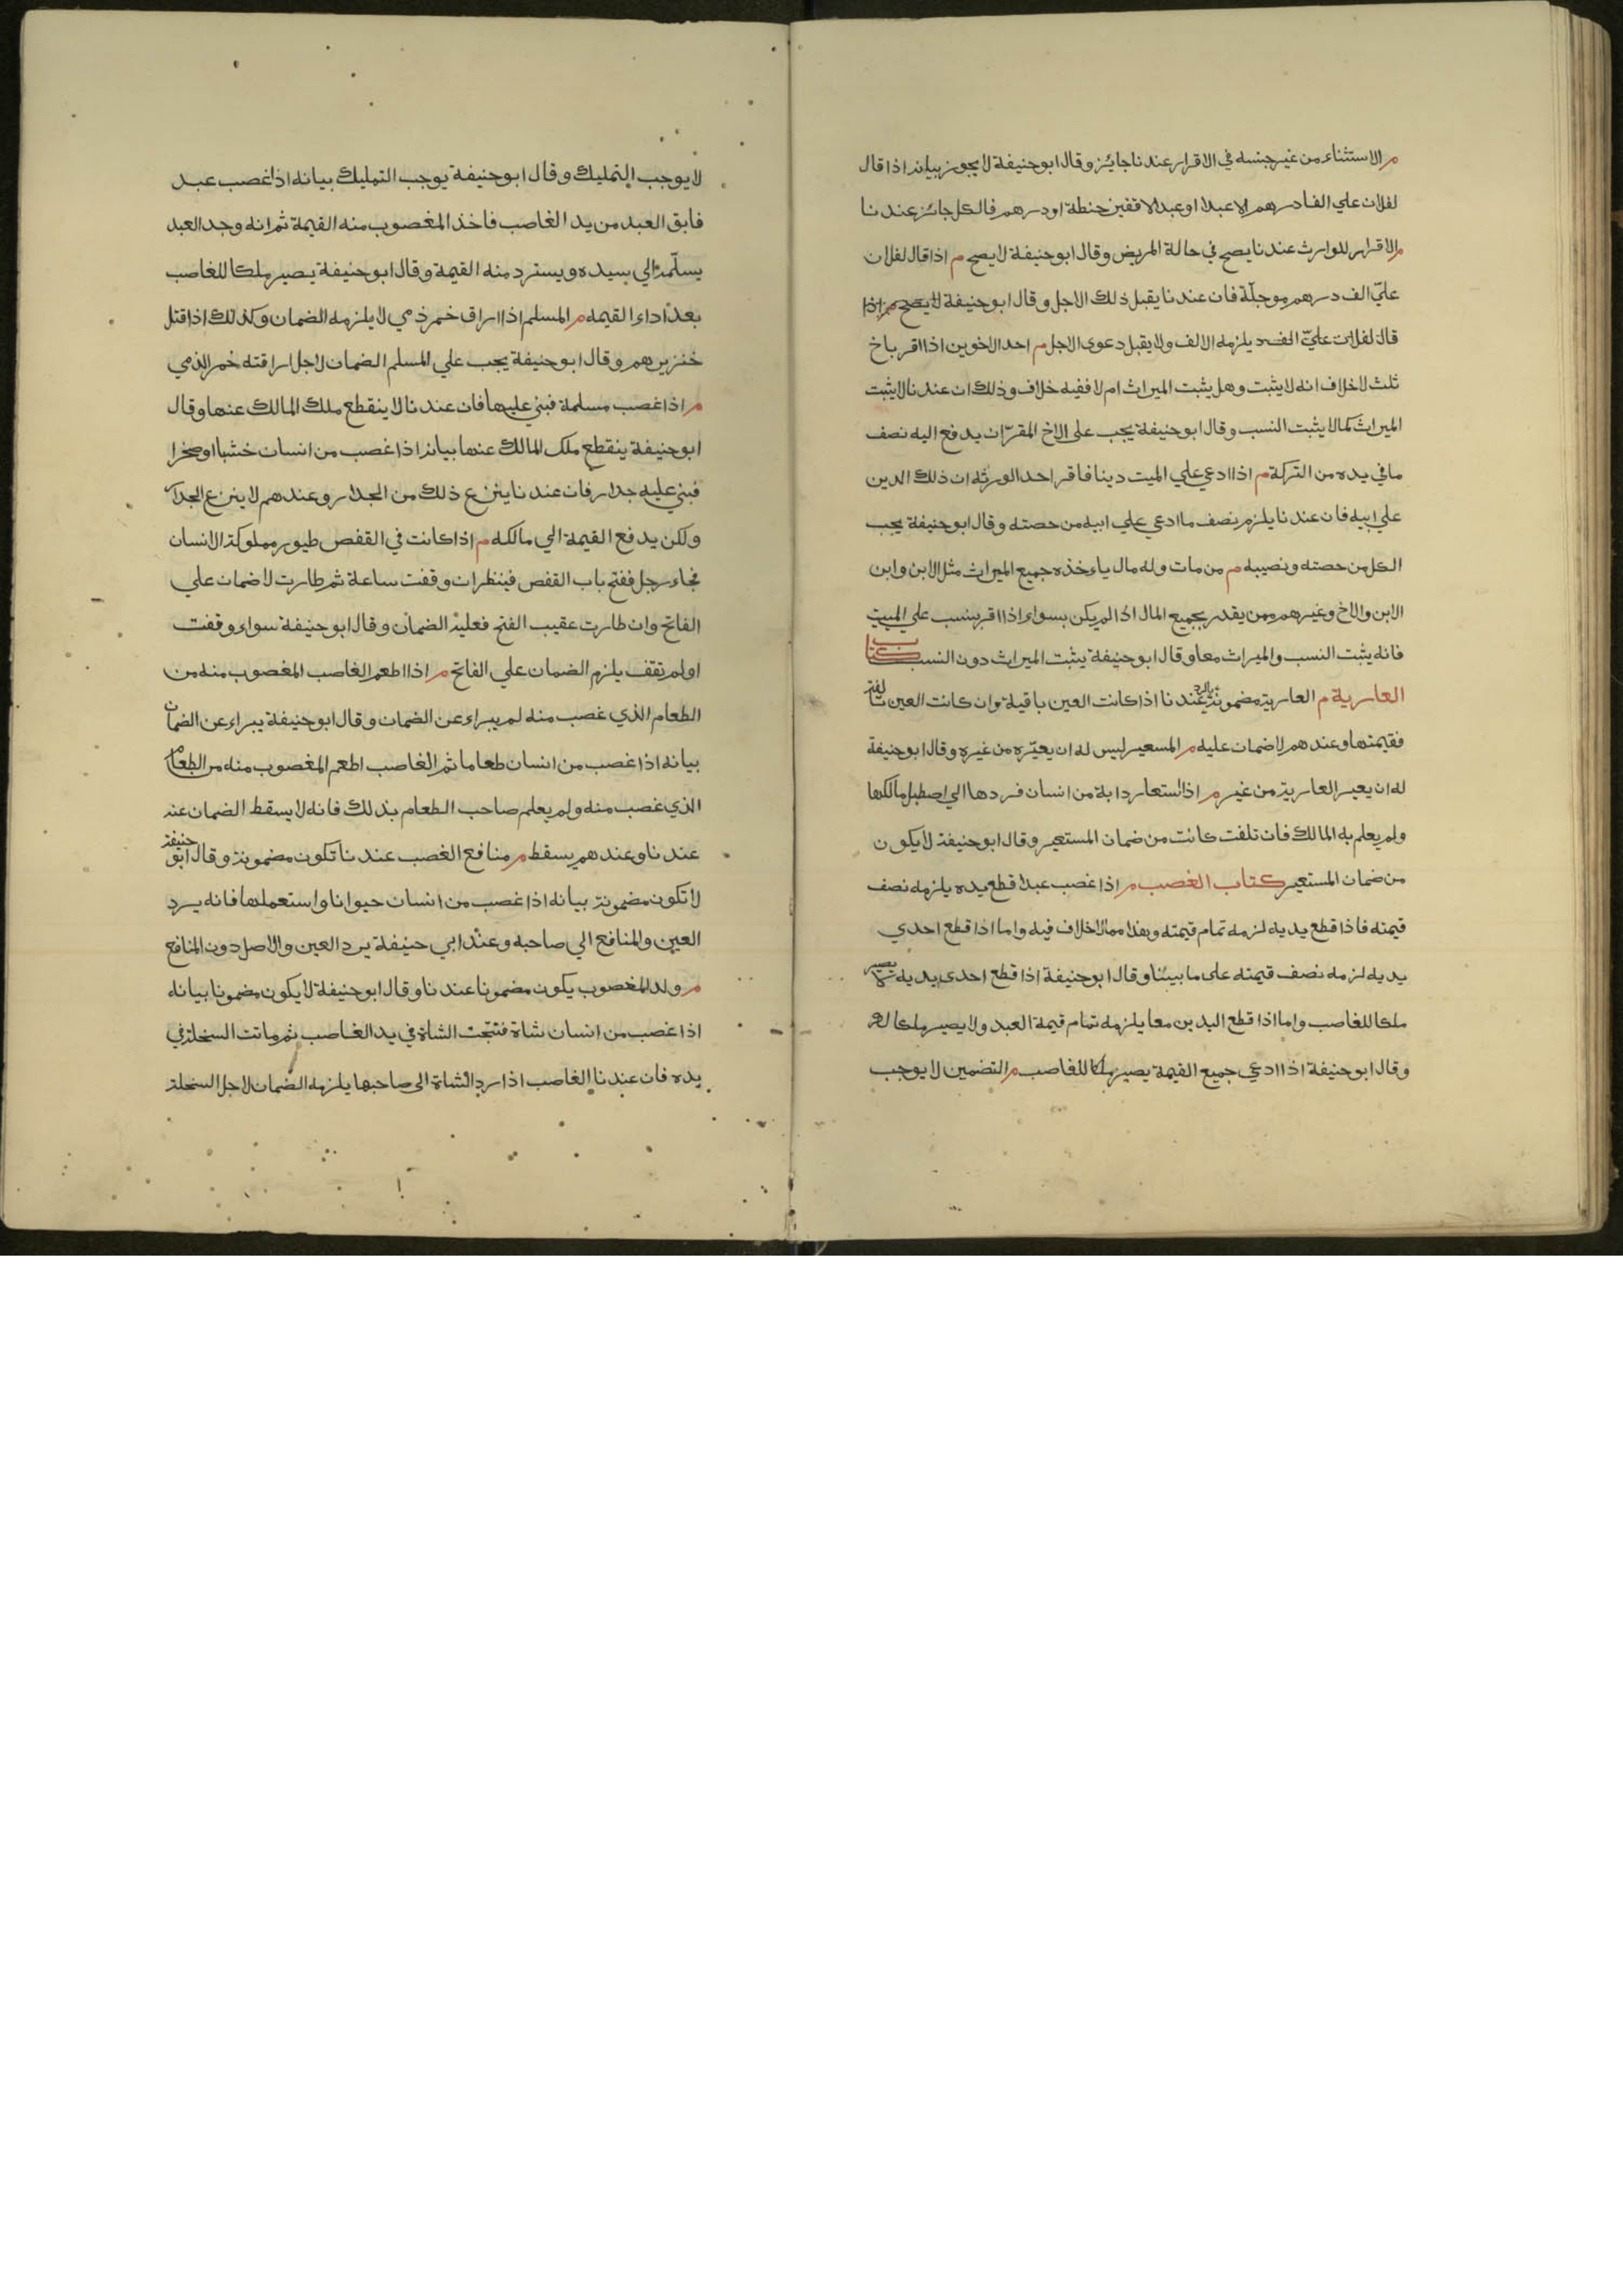 م الاستثناء من غير جنسه في الاقرار عندنا جائز وقال ابو حنيفة لا يجوز بيانه اذا قال
لفلان علي الفا درهم الا عبدا او عبدا الا قفيز حنطة او درهم فالكل جائز عندنا
م الاقرار للوارث عندنا يصح في حالة المريض وقال ابو حنيفة لا يصح م اذا قال لفلان
عليّ الف درهم موجلّة فان عندنا يقبل ذلك الاجل وقال ابو حنيفة لا يصح م اذا
قال لفلان عليّ الف يلزمه الالف ولا يقبل دعوى الاجل م احد الاخوين اذا اقر باخ
ثلث لا خلاف انه لا يثبت وهل يثبت الميراث ام لا ففيه خلاف وذلك ان عندنا لا يثبت
الميراث كما لا يثبت النسب وقال ابو حنيفة يجب على الاخ المقرّ ان يدفع اليه نصف
ما في يده من التركة م اذا ادعي علي الميت دينا فاقر احد الورثه ان ذلك الدين
علي ابيه فان عندنا يلزم نصف ما ادعي علي ابيه من حصته وقال ابو حنيفة يجب
الكل من حصته ونصيبه م من مات وله مال ياءخذه جميع الميراث مثل الابن وابن
الابن والاخ وغيرهم ومن يقدر بجميع المال اذا لم يكن بسواء اذا اقر بنسب علي الميت
فانه يثبت النسب والميراث معا وقال ابو حنيفة يثبت الميراث دون النسب كتاب
العارية م العارية مضمونة بالرد عندنا اذا كانت العين باقية وان كانت العين تالفة
فقيمتها وعندهم لا ضمان عليه م المسعير ليس له ان يعيّره من غيره وقال ابو حنيفة
له ان يعير العارية من غير م اذا استعار دابة من انسان فردها الي اصطبل مالكها
ولم يعلم به المالك فان تلفت كانت من ضمان المستعير وقال ابو حنيفة لا يكون
من ضمان المستعير كتاب الغصب م اذا غصب عبدا قطع يده يلزمه نصف
قيمته فاذا قطع يديه لزمه تمام قيمته وهذا مما لا خلاف فيه واما اذا قطع احدي
يديه لزمه نصف قيمته على ما بينا وقال ابو حنيفة اذا قطع احدى يديه يصير
ملكا للغاصب واما اذا قطع اليدين معا يلزمه تمام قيمة العبد ولا يصير ملكا له
وقال ابو حنيفة اذا ادعي جميع القيمة يصير ملكا للغاصب م التضمين لا يوجب
لا يوجب التمليك وقال ابو حنيفة يوجب التمليك بيانه اذا غصب عبد
فابق العبد من يد الغاصب فاخذ المغصوب منه القيمة ثم انه وجد العبد
يسلّمه الي سيده ويسترد منه القيمة وقال ابو حنيفة يصير ملكا للغاصب
بعد اداء القيمه م المسلم اذا اراق خمر ذمي لا يلزمه الضمان وكذلك اذا قتل
خنزيرهم وقال ابو حنيفة يجب علي المسلم الضمان لاجل اراقته خمر الذمي
م اذا غصب مسلمة فبني عليها فان عندنا لا ينقطع ملك المالك عنها وقال
ابو حنيفة ينقطع ملك المالك عنها بيانه اذا غصب من انسان خشبا او صخرا
فبني عليه جدار فان عندنا ينزع ذلك من الجدار وعندهم لا ينزع الجدار
ولكن يدفع القيمة الي مالكه م اذا كانت في القفص طيور مملوكة لانسان
فجاء رجل ففتح باب القفص فينظر ان وقفت ساعة ثم طارت لا ضمان علي
الفاتح وان طارت عقيب الفتح فعليه الضمان وقال ابو حنيفة سواء وقفت
او لم تقف يلزم الضمان علي الفاتح م اذا اطعم الغاصب المغصوب منه من
الطعام الذي غصب منه لم يبراء عن الضمان وقال ابو حنيفة يبراء عن الضمان
بيانه اذا غصب من انسان طعاما ثم الغاصب اطعم المغصوب منه من الطعام
الذي غصب منه ولم يعلم صاحب الطعام بذلك فانه لا يسقط الضمان عنه
عندنا وعندهم يسقط م منافع الغصب عندنا تكون مضمونة وقال ابو حنيفة
لا تكون مضمونة بيانه اذا غصب من انسان حيوانا واستعملها فانه يرد
العين والمنافع الي صاحبه وعند ابي حنيفة يرد العين والاصل دون المنافع
م ولد المغصوب يكون مضمونا عندنا وقال ابو حنيفة لا يكون مضمونا بيانه
اذا غصب من انسان شاة فنتجت الشاة في يد الغاصب ثم ماتت السخلة في
يده فان عندنا الغاصب اذا رد الشاة الى صاحبها يلزمه الضمان لاجل السخلة